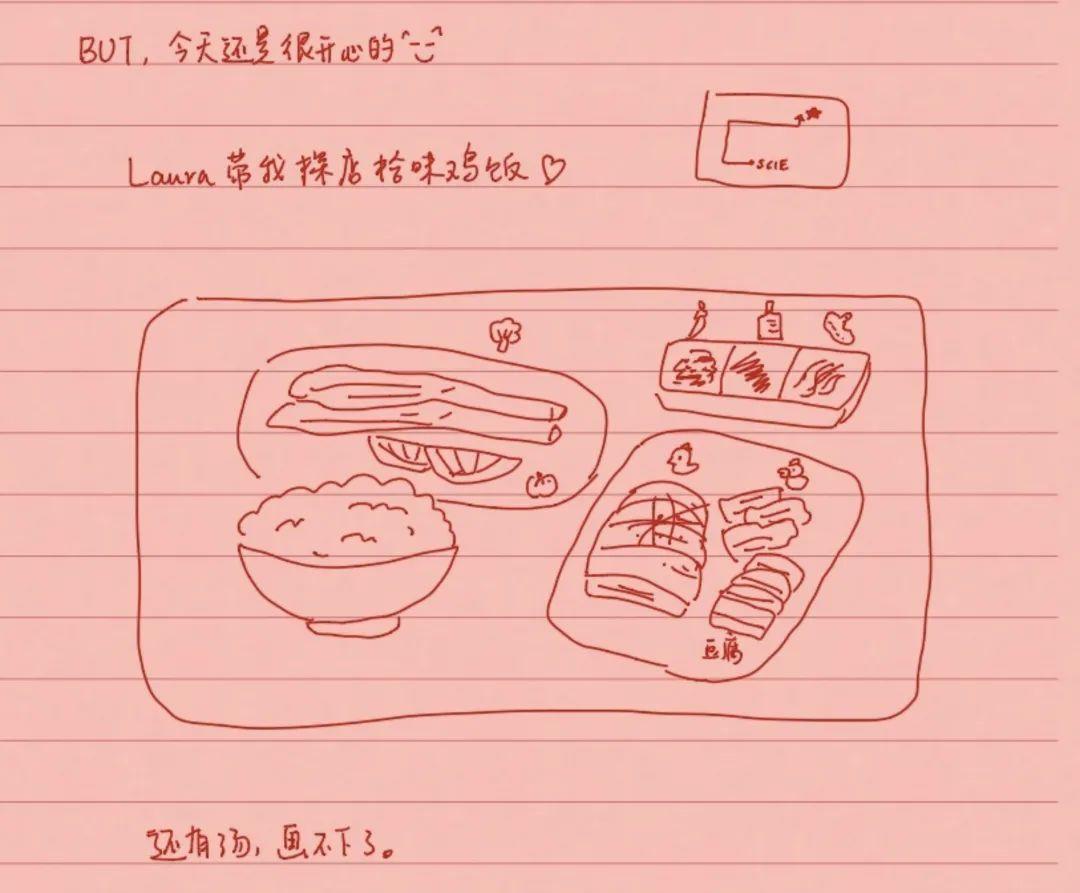 BUT, 今天还是很开心的
Laura带我探店拾味鸡饭♡
SCIE
豆腐
还有汤, 画不下了。